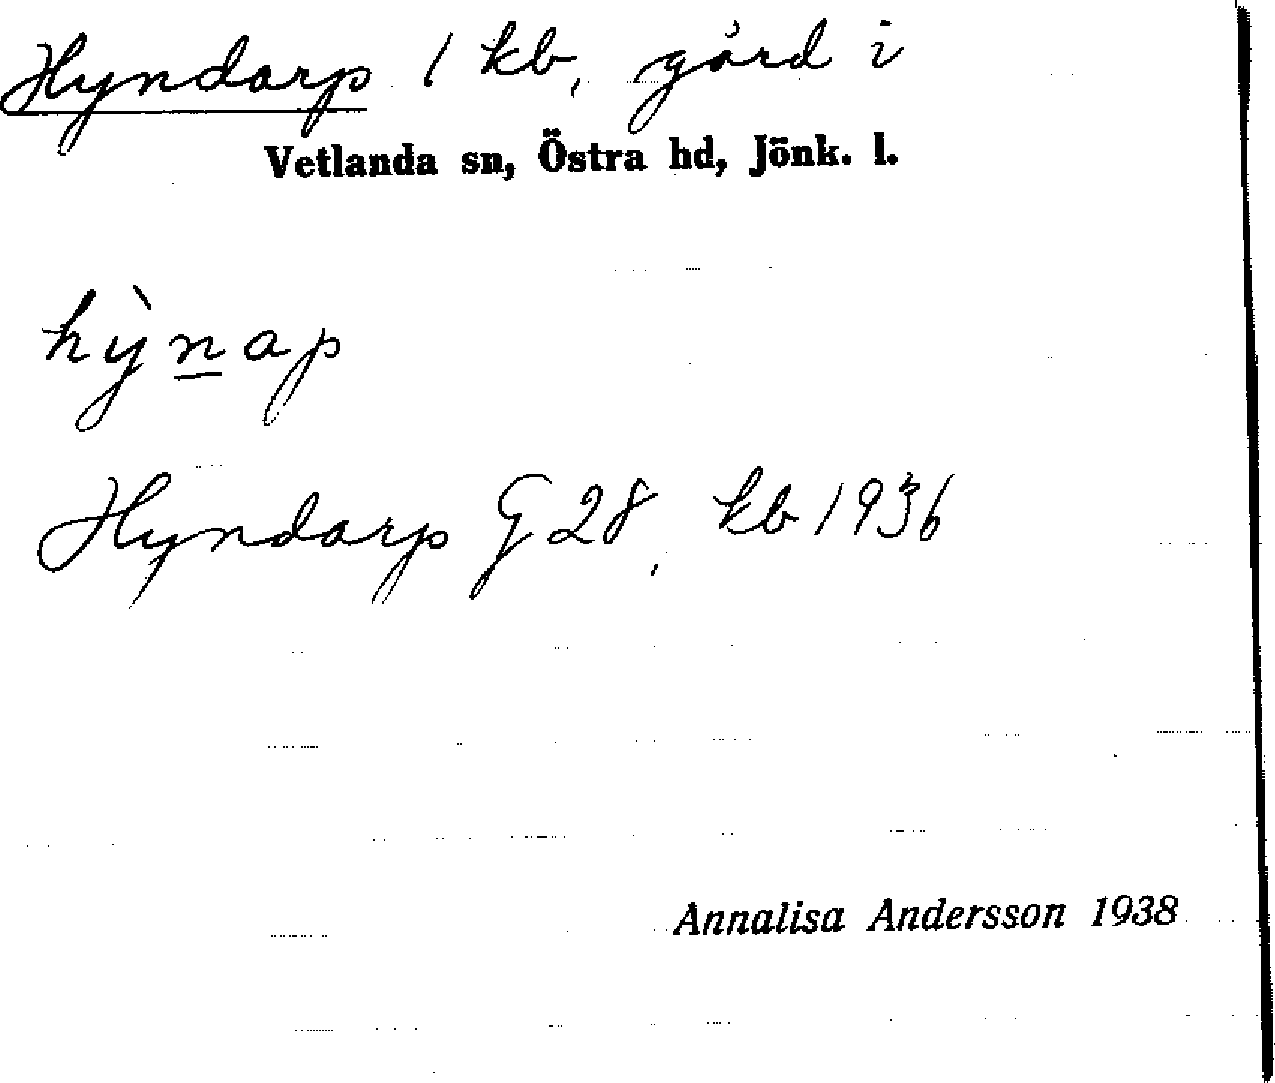 Hyndarp 1 kb, gård i
Vetlanda sn, Östra hd, Jönk. l.
hỳn̲ap
Hyndarp G 28, kb 1936
Annalisa Andersson 1938